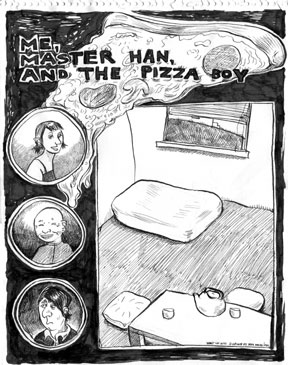 ME,
MASTER HAN,
AND THE PIZZA BOY